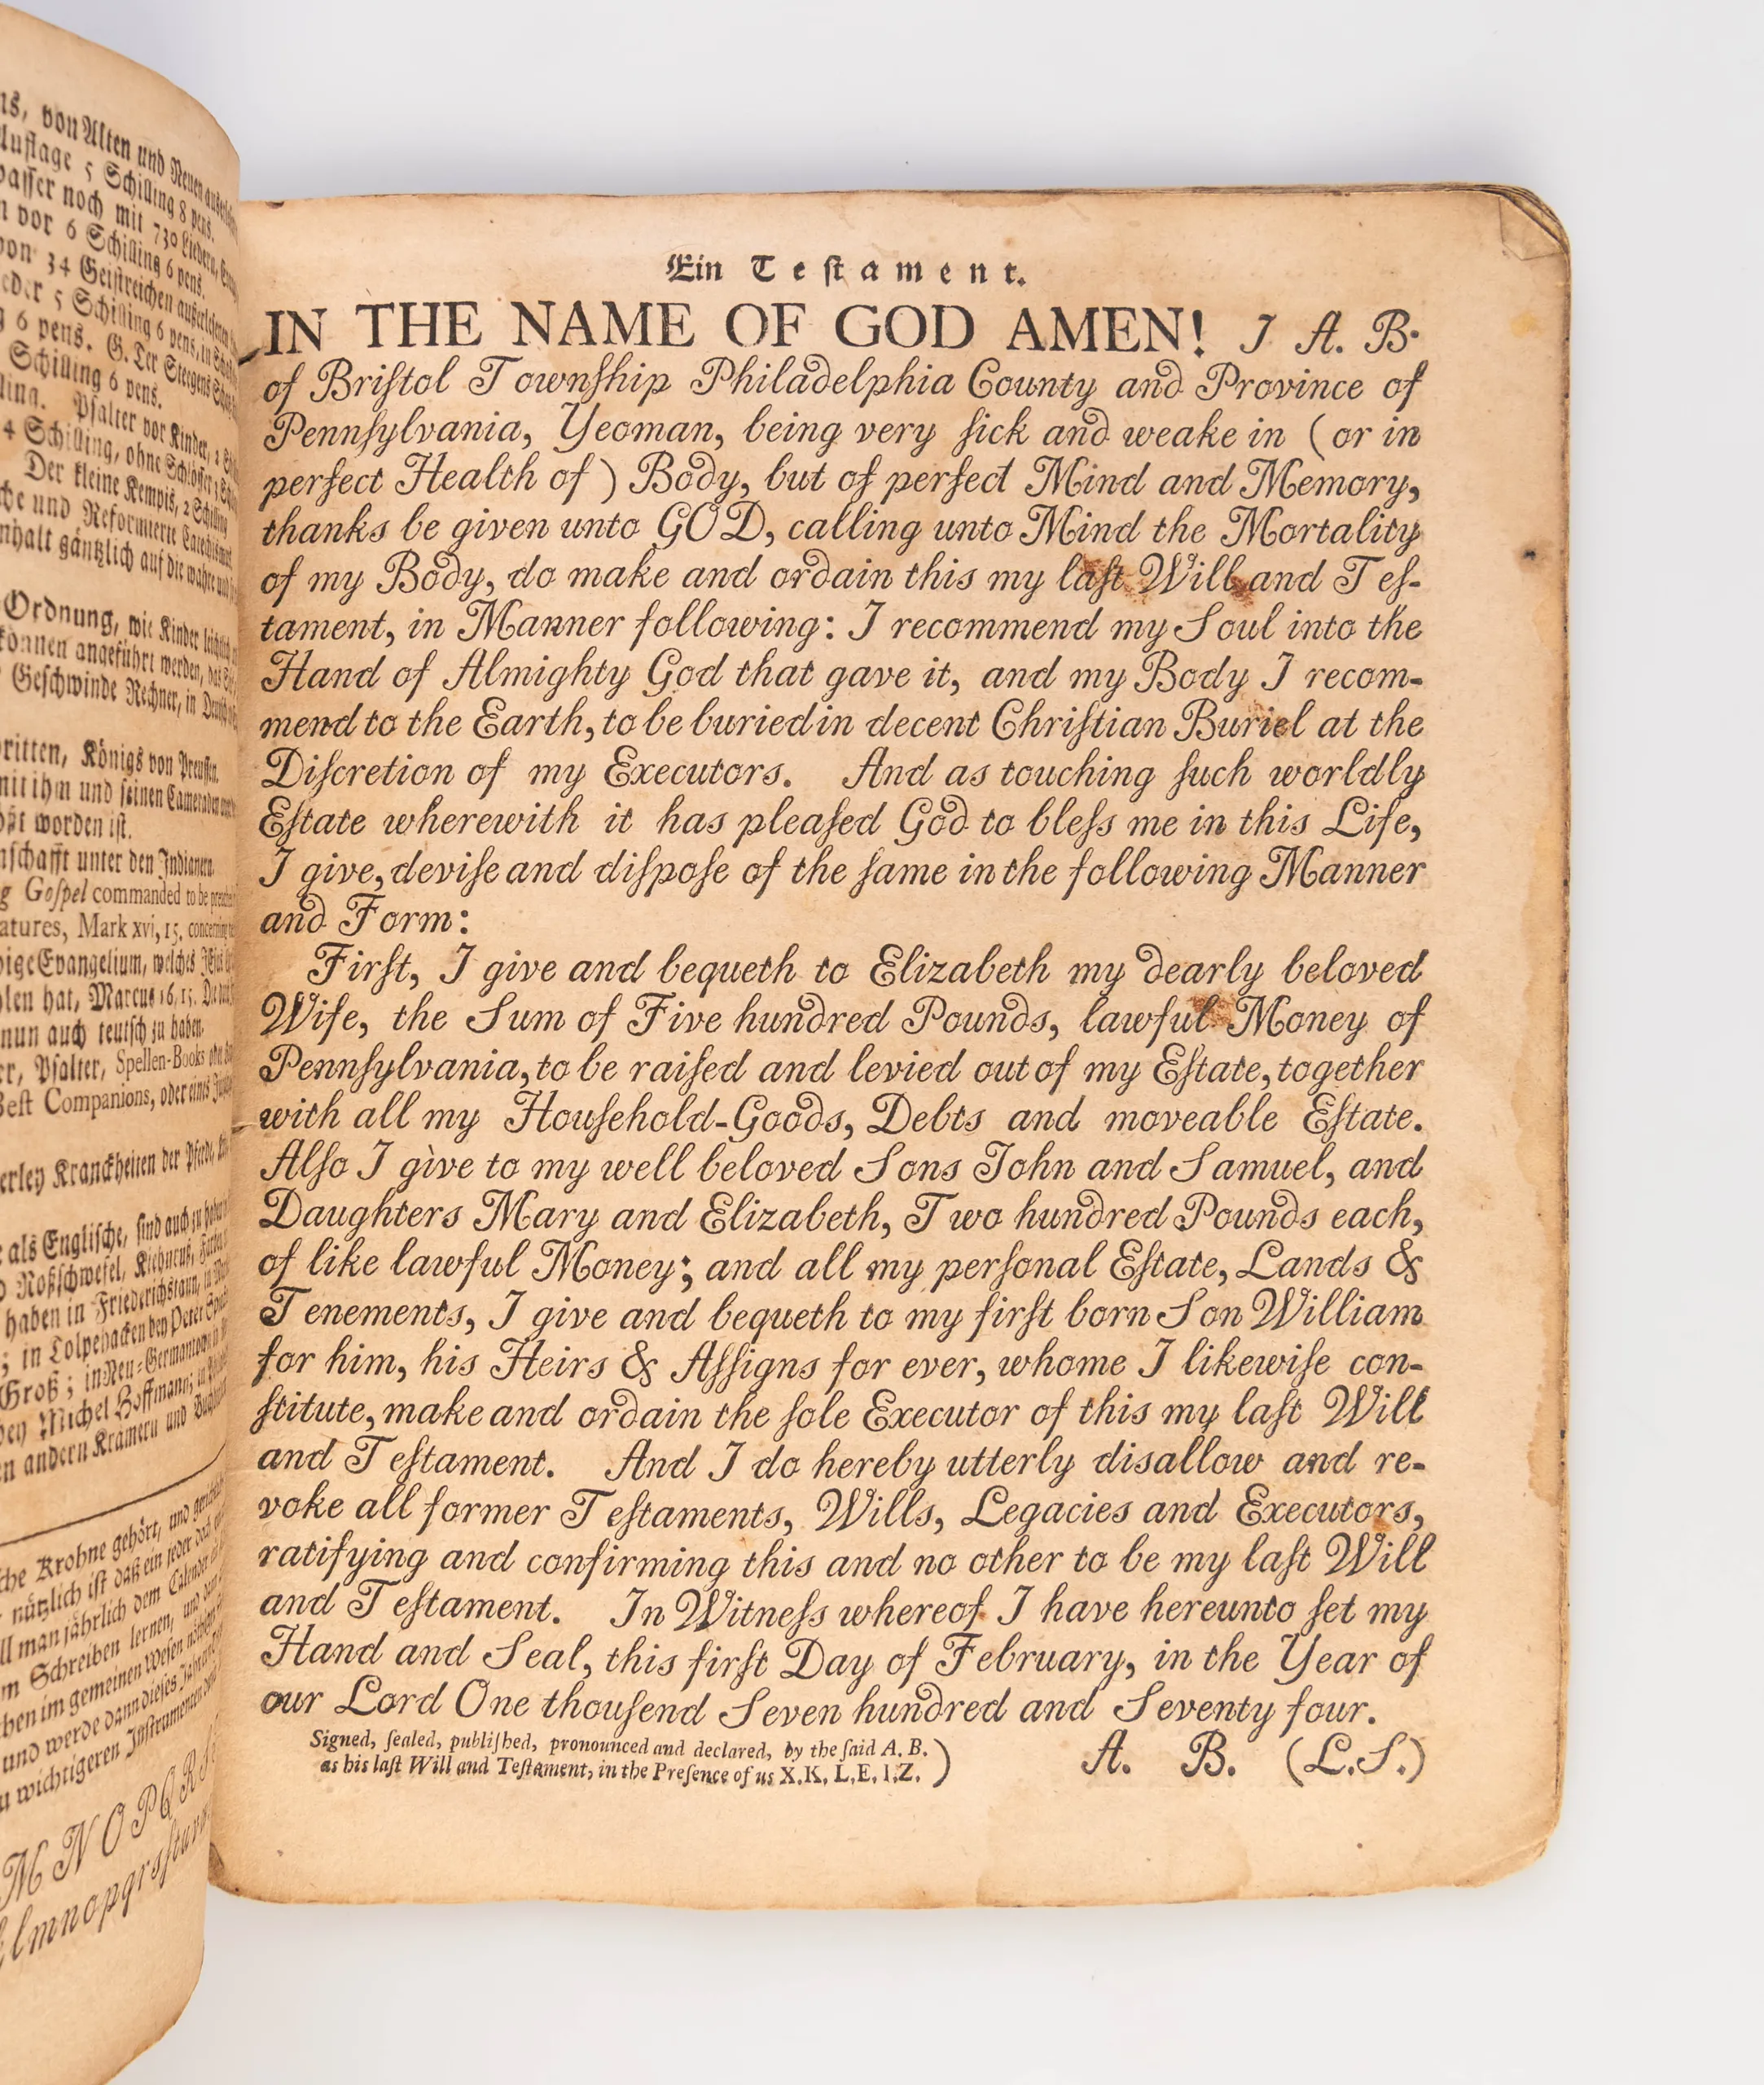 von Alten und Neuen
Auflage 5 Schilling 8 pens.
noch mit 730 Liedern,
vor 6 Schilling 6 pens.
von 34 Geiſtreichen auſzerleſenen
5 Schilling 6 pens, in
6 pens. G. Ter Steegens
Schilling 6 pens.
Pſalter vor Kinder,
4 Schilling, ohne Schlöſſer
Der kleine Kempis, 2 Schilling
und Reformierte Catechismus
gäntzlich auf die wahre und
Ordnung, wie Kinder
können angeführt werden, das
Geſchwinde Rechner, in
Königs von Preuſſen.
mit ihm und ſeinen Cameraden
worden iſt.
unter den Indianern.
Goſpel commanded to be
Mark xvi, 15. concerning
Evangelium, welches
hat, Marcus 16, 15.
nun auch teutſch zu haben.
Pſalter, Spellen-Books
Beſt Companions, oder eines
Kranckheiten der Pferde,
als Engliſche, ſind auch zu haben
Roßſchwefel,
haben in Friederichstaun,
in Tolpehacken bey Peter
Groß; in Neu-Germantown
bey Michel Hoffmann;
andern Krämern und
Krohne gehört, und
nützlich iſt daß ein jeder
man jährlich dem Calender
Schreiben lernen, und
im gemeinen Weſen
und werde dann dieſes
wichtigeren Inſtrumenten
M N O P Q R S
l m n o p q r s ſ t u v
Ein Teſtament.
IN THE NAME OF GOD AMEN! I A. B.
of Briſtol Townſhip Philadelphia County and Province of
Pennſylvania, Yeoman, being very ſick and weake in (or in
perfect Health of) Body, but of perfect Mind and Memory,
thanks be given unto GOD, calling unto Mind the Mortality
of my Body, do make and ordain this my laſt Will and Teſ-
tament, in Manner following: I recommend my Soul into the
Hand of Almighty God that gave it, and my Body I recom-
mend to the Earth, to be buried in decent Chriſtian Buriel at the
Diſcretion of my Executors. And as touching ſuch worldly
Eſtate wherewith it has pleaſed God to bleſs me in this Life,
I give, deviſe and diſpoſe of the ſame in the following Manner
and Form:
Firſt, I give and bequeth to Elizabeth my dearly beloved
Wife, the Sum of Five hundred Pounds, lawful Money of
Pennſylvania, to be raiſed and levied out of my Eſtate, together
with all my Houſehold-Goods, Debts and moveable Eſtate.
Alſo I give to my well beloved Sons John and Samuel, and
Daughters Mary and Elizabeth, Two hundred Pounds each,
of like lawful Money; and all my perſonal Eſtate, Lands &
Tenements, I give and bequeth to my firſt born Son William
for him, his Heirs & Aſſigns for ever, whome I likewiſe con-
ſtitute, make and ordain the ſole Executor of this my laſt Will
and Teſtament. And I do hereby utterly disallow and re-
voke all former Teſtaments, Wills, Legacies and Executors,
ratifying and confirming this and no other to be my laſt Will
and Teſtament. In Witneſs whereof I have hereunto ſet my
Hand and Seal, this firſt Day of February, in the Year of
our Lord One thouſend Seven hundred and Seventy four.
Signed, ſealed, publiſhed, pronounced and declared, by the ſaid A. B.
as his laſt Will and Teſtament, in the Preſence of us X.K, L.E, I.Z. )
A. B. (L.S.)